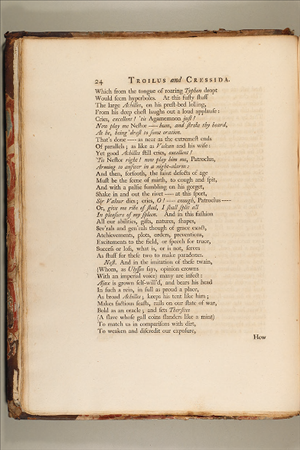 24 TROILUS and CRESSIDA.
Which from the tongue of roaring Typhon dropt
Would seem hyperboles. At this fusty stuff
The large Achilles, on his prest-bed lolling,
From his deep chest laughs out a loud applause:
Cries, excellent! 'tis Agamemnon just!
Now play me Nestor — hum, and stroke thy beard,
As he, being 'drest to some oration.
That's done — as near as the extremest ends
Of parallels; as like as Vulcan and his wife:
Yet good Achilles still cries, excellent!
'Tis Nestor right! now play him me, Patroclus,
Arming to answer in a night-alarm:
And then, forsooth, the faint defects of age
Must be the scene of mirth, to cough and spit,
And with a palsie fumbling on his gorget,
Shake in and out the rivet — at this sport,
Sir Valour dies; cries, O! — enough, Patroclus —
Or, give me ribs of steel, I shall split all
In pleasure of my spleen. And in this fashion
All our abilities, gifts, natures, shapes,
Sev'rals and gen'rals though of grace exact,
Atchievements, plots, orders, preventions,
Excitements to the field, or speech for truce,
Success or loss, what is, or is not, serves
As stuff for these two to make paradoxes.
Nest. And in the imitation of these twain,
(Whom, as Ulysses says, opinion crowns
With an imperial voice) many are infect:
Ajax is grown self-will'd, and bears his head
In such a rein, in full as proud a place,
As broad Achilles; keeps his tent like him;
Makes factious feasts, rails on our state of war,
Bold as an oracle; and sets Thersites
(A slave whose gall coins slanders like a mint)
To match us in comparisons with dirt,
To weaken and discredit our exposure,
How